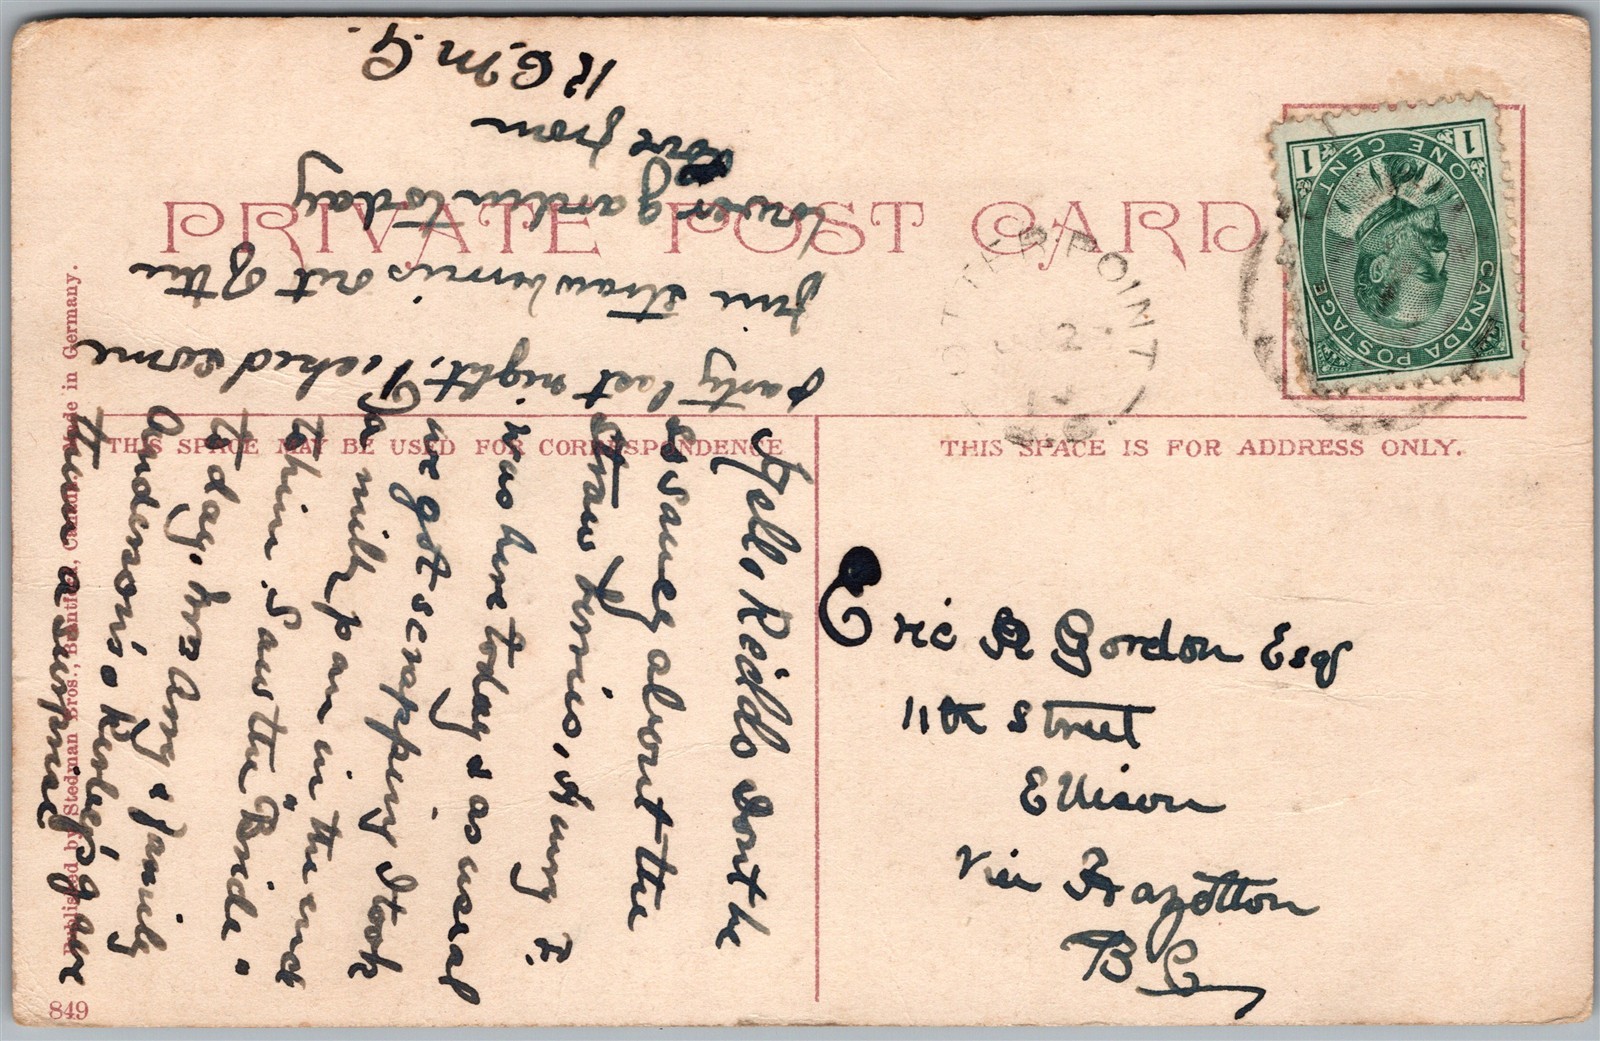 PRIVATE POST CARD
THIS SPACE MAY BE USED FOR CORRESPONDENCE
THIS SPACE IS FOR ADDRESS ONLY.
CANADA POSTAGE
ONE CENT
1 1
POINT
2
Hello Kiddo dont be
so saucy about the
Straw berries, Harry F.
was here today & as usual
we got scrapping I took
a milk pan in the neck
to him. Saw the "Bride"
today. Mrs Amy & family
Anderson's & Kirby's gave
them a surprise
party last night. Picked some
fine strawberries out of the
lower garden today
Love from
K C. M. G.
Eric R Gordon Esq
11th Street
Ellison
Via Hazelton
B C
Published by Stedman Bros., Brantford, Canada. Made in Germany.
849